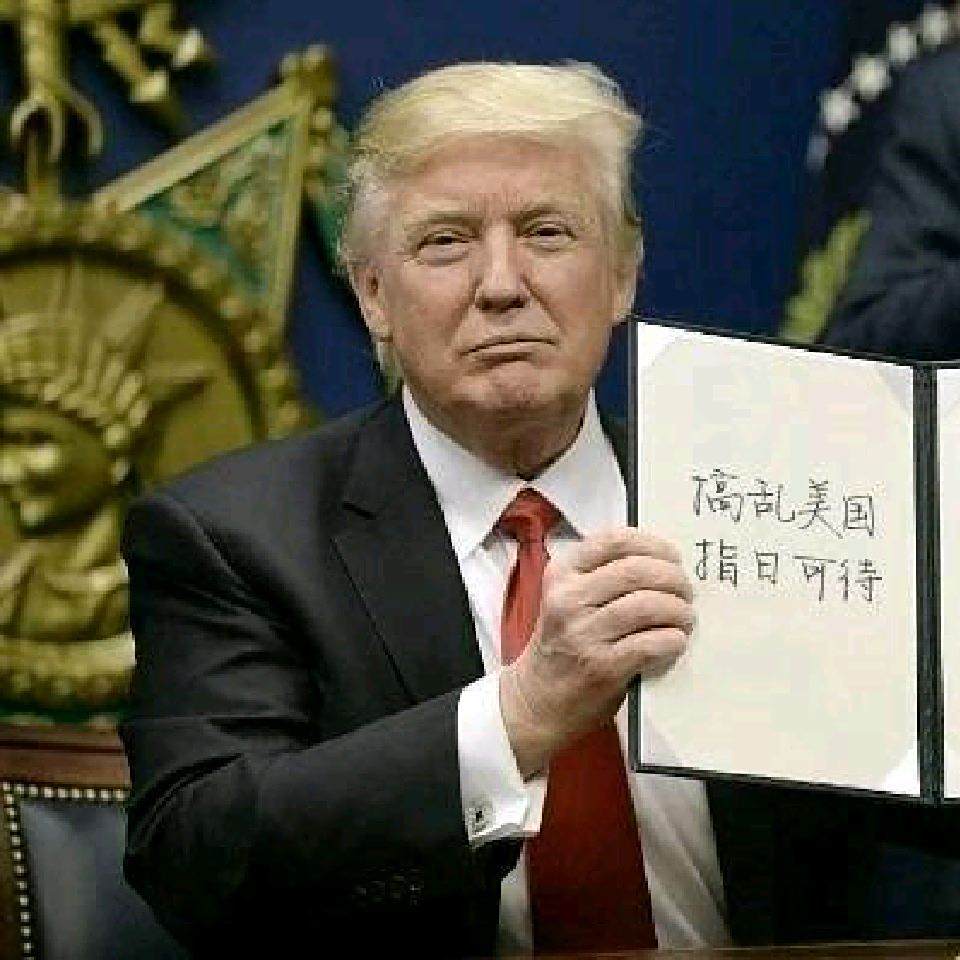 搞乱美国
指日可待